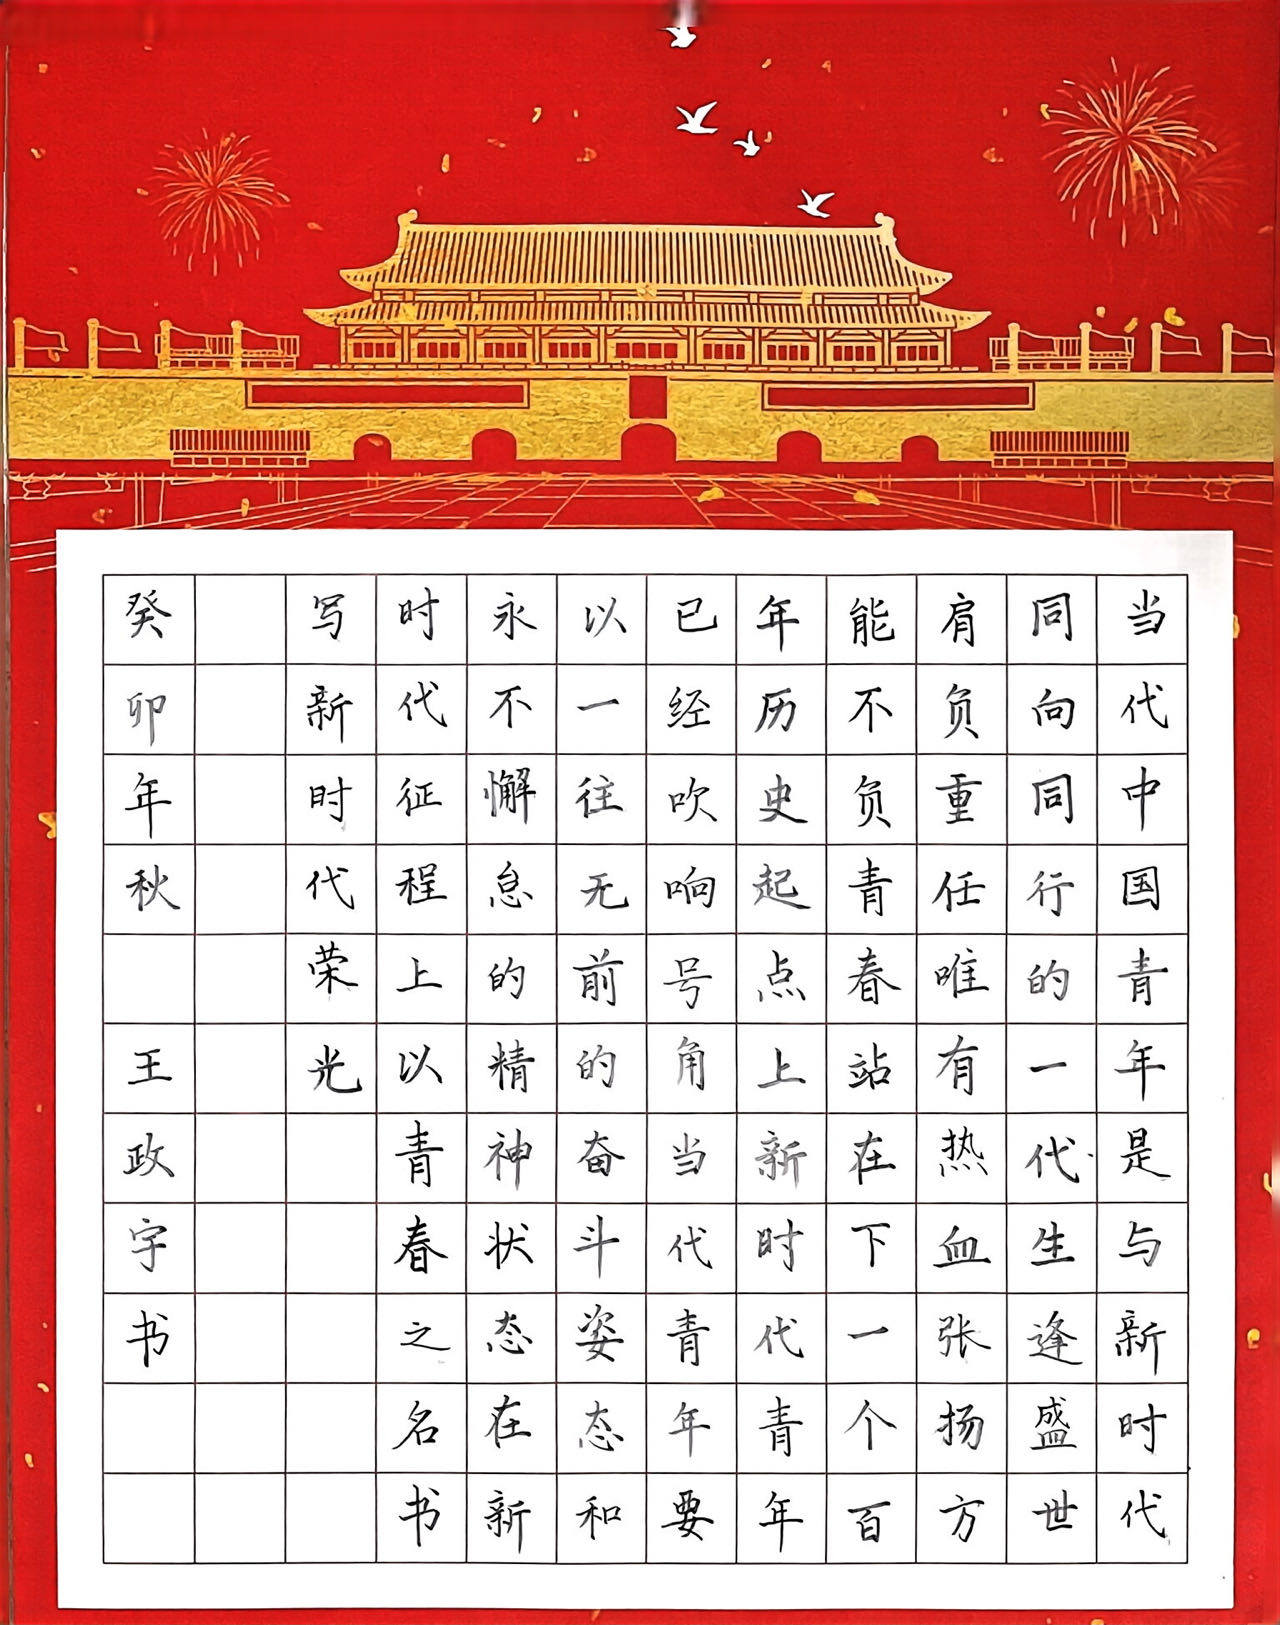 当代中国青年是与新时代
同向同行的一代生逢盛世
肩负重任唯有热血张扬方
能不负青春站在下一个百
年历史起点上新时代青年
已经吹响号角当代青年要
以一往无前的奋斗姿态和
永不懈怠的精神状态在新
时代征程上以青春之名书
写新时代荣光
癸卯年秋 王政宇书